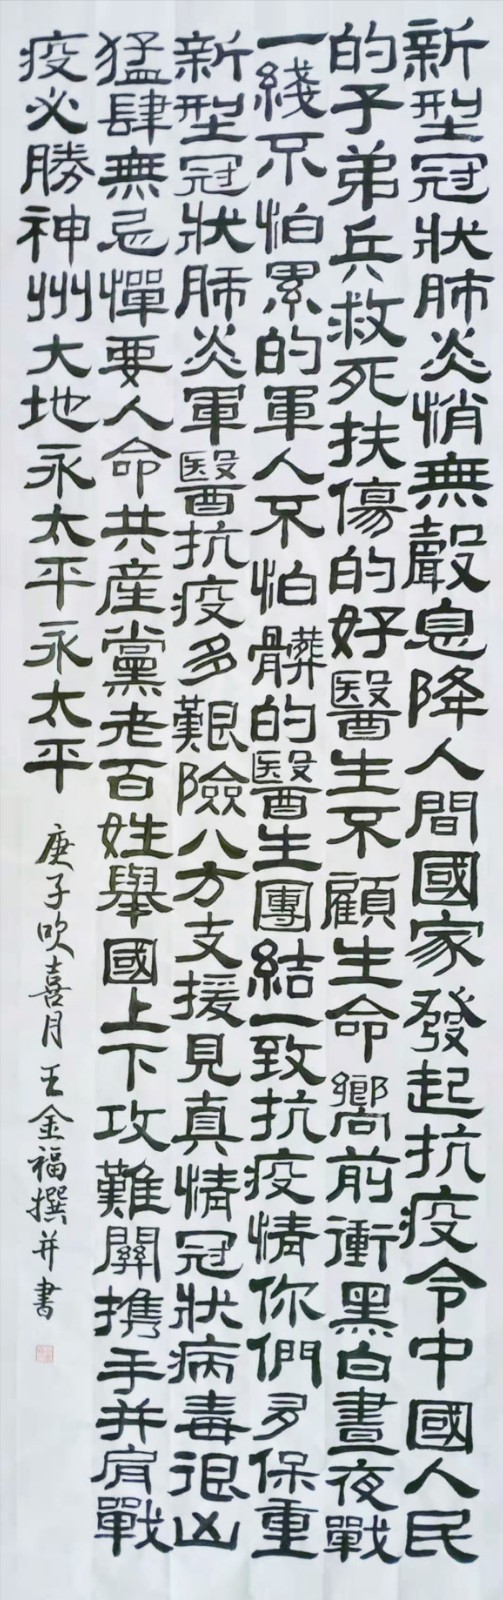 新型冠狀肺炎悄無聲息降人間國家發起抗疫令中國人民
的子弟兵救死扶傷的好醫生不顧生命嚮前衝黑白晝夜戰
一綫不怕累的軍人不怕髒的醫生團結一致抗疫情你們多保重
新型冠狀肺炎軍醫抗疫多艱險八方支援見真情冠狀病毒很凶
猛肆無忌憚要人命共産黨老百姓舉國上下攻難關携手并肩戰
疫必勝神州大地永太平永太平
庚子吹喜月王金福撰并書